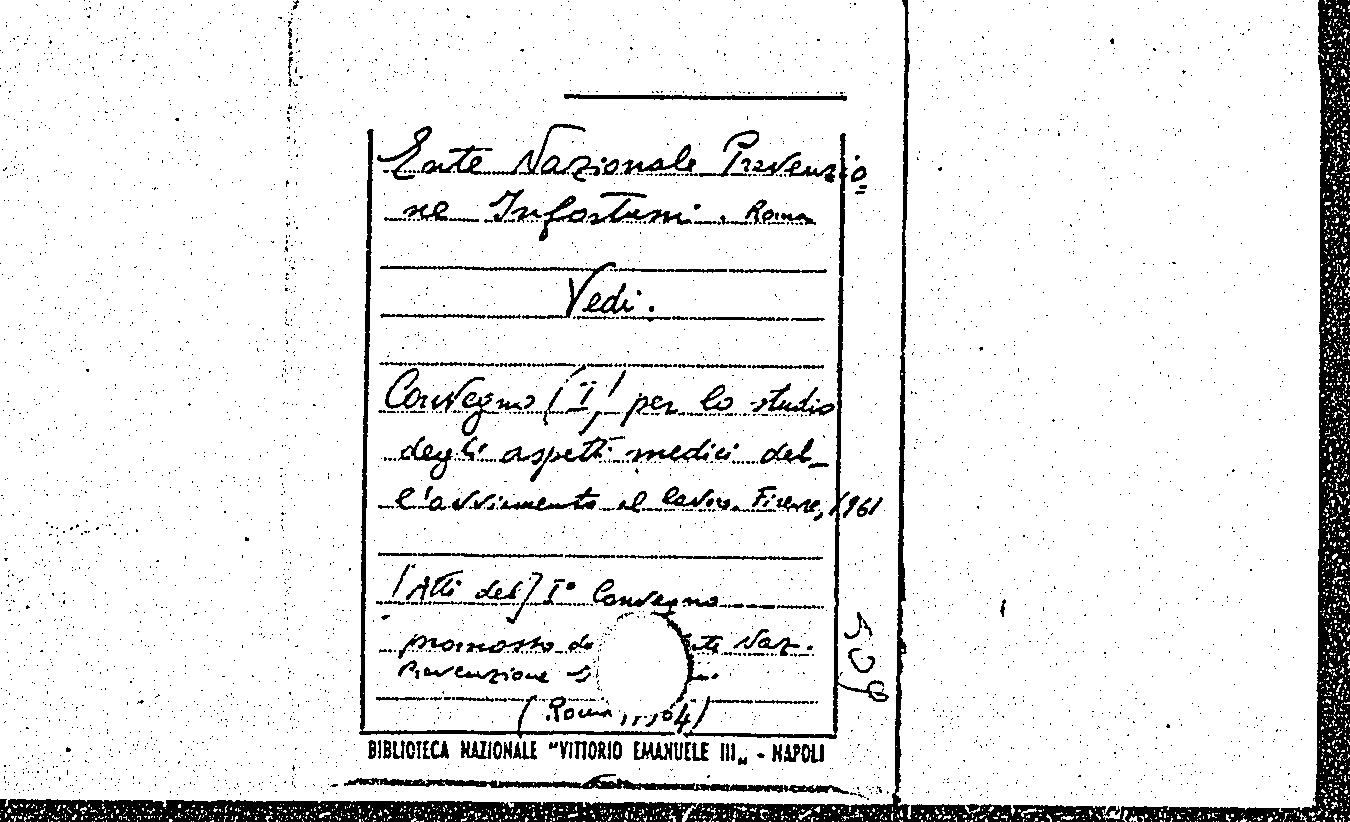 Ente Nazionale Prevenzio=
ne Infortuni. Roma
Vedi.
Convegno (I) per lo studio
degli aspetti medici del-
l'avviamento al lavoro. Firenze, 1961
[Atti del] I° Convegno
promosso da Naz.
Prevenzione
(Roma
BIBLIOTECA NAZIONALE "VITTORIO EMANUELE III„ - NAPOLI